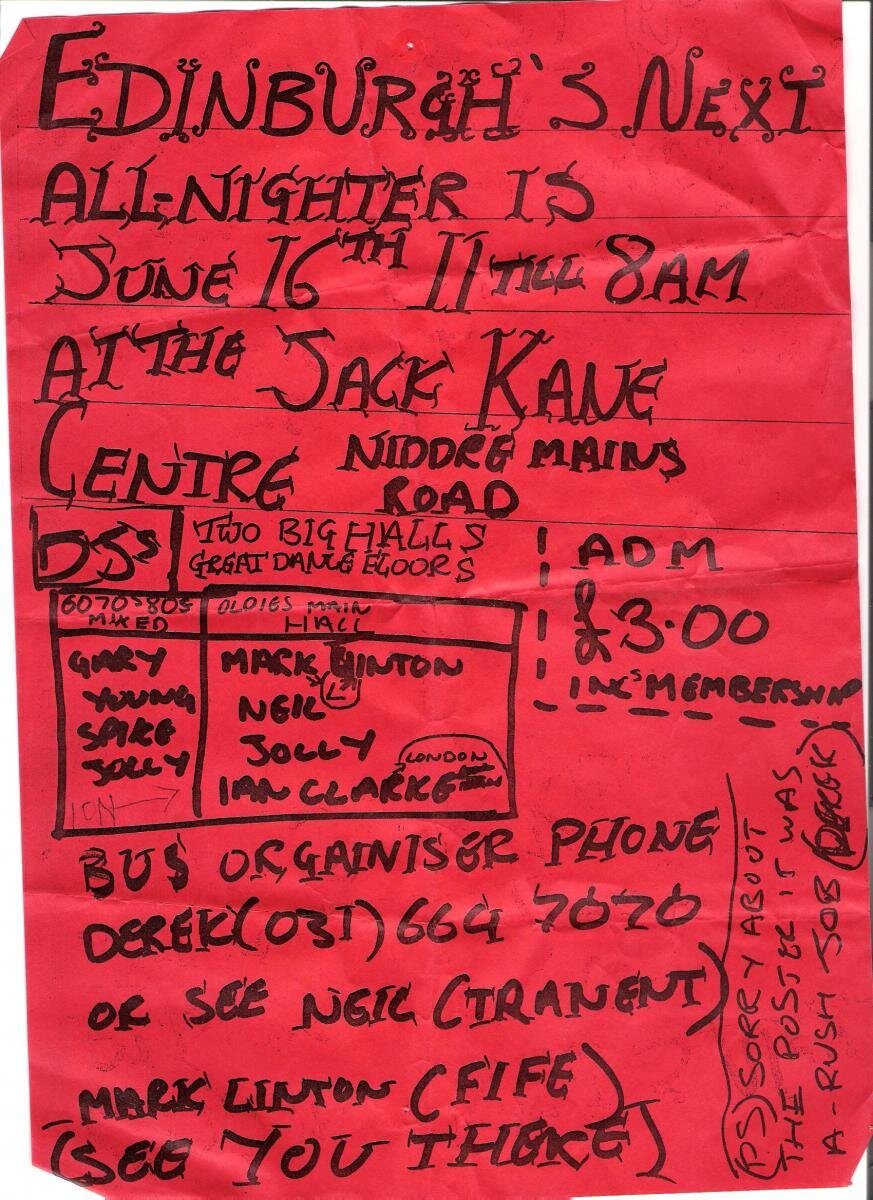 EDINBURGH'S NEXT
ALL-NIGHTER IS
JUNE 16TH 11 TILL 8AM
AT THE JACK KANE
CENTRE NIDDRE MAINS
ROAD
DJs
TWO BIG HALLS
GREAT DANCE FLOORS
ADM
£3.00
INC MEMBERSHIP
60 70's 80s
MIXED
GARY
YOUNG
SPIKE
JOLLY
OLDIES MAIN
HALL
MARK LINTON
NEIL
JOLLY
IAN CLARKE
LONDON
BUS ORGAINISER PHONE
DEREK (031) 664 7070
OR SEE NEIL (TRANENT)
MARK LINTON (FIFE)
(SEE YOU THERE)
(PS) SORRY ABOUT
THE POSTER IT WAS
A-RUSH JOB (DEREK)